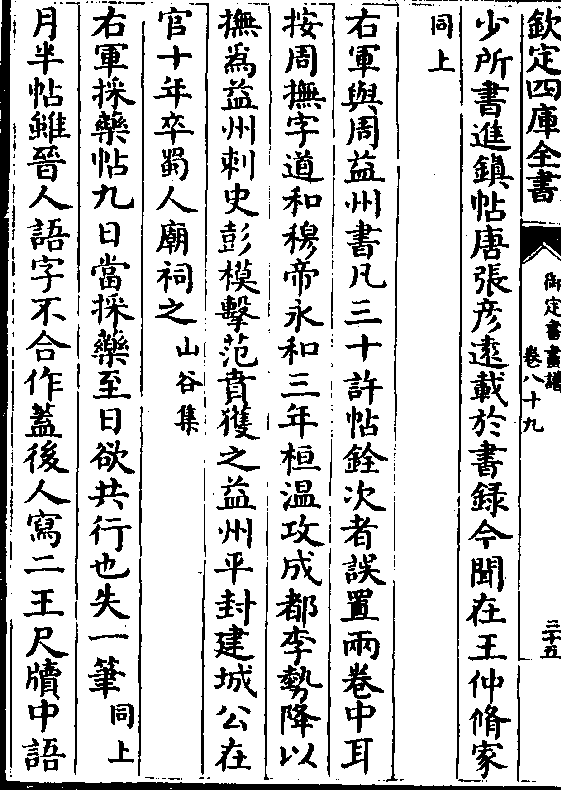 欽定四庫全書
御定書畫譜
卷八十九
二十五
少所書進鎮帖唐張彥遠載於書錄今聞在王仲脩家
同上
右軍與周益州書凡三十許帖銓次者誤置兩卷中耳
按周撫字道和穆帝永和三年桓温攻成都李勢降以
撫為益州刺史彭模擊范賁獲之益州平封建城公在
官十年卒蜀人廟祠之山谷集
右軍採藥帖九日當採藥至日欲共行也失一筆同上
月半帖雖晉人語字不合作蓋後人寫二王尺牘中語